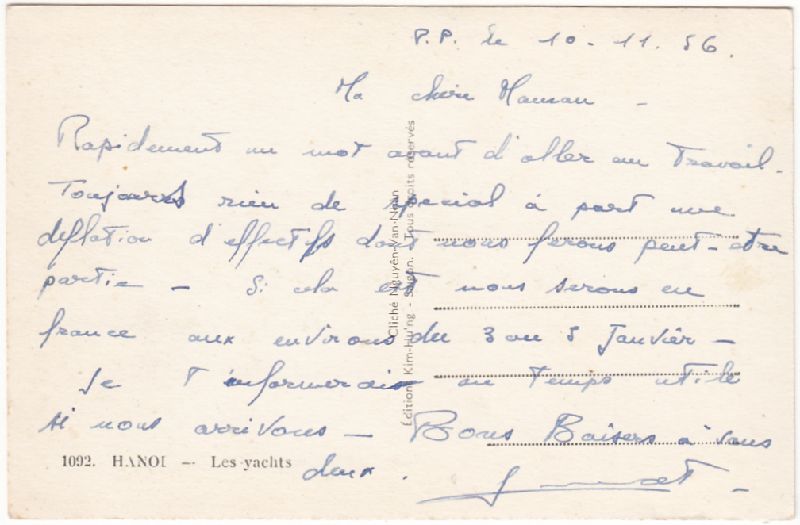 P.P. le 10-11.56.
Ma chère Maman -
Rapidement un mot avant d'aller au Travail.
Toujours rien de spécial à part une
déflation d'effectifs dont nous ferons peut-être
partie - Si cela est nous serons en
france aux environs du 3 au 5 Janvier -
Je t'informerais en temps utile
si nous arrivons - Bons Baisers à vous
deux.
1092. HANOI - Les yachts
Cliché Nguyên-Van-Ngan
Éditions Kim-Hung - Saigon. Tous droits réservés